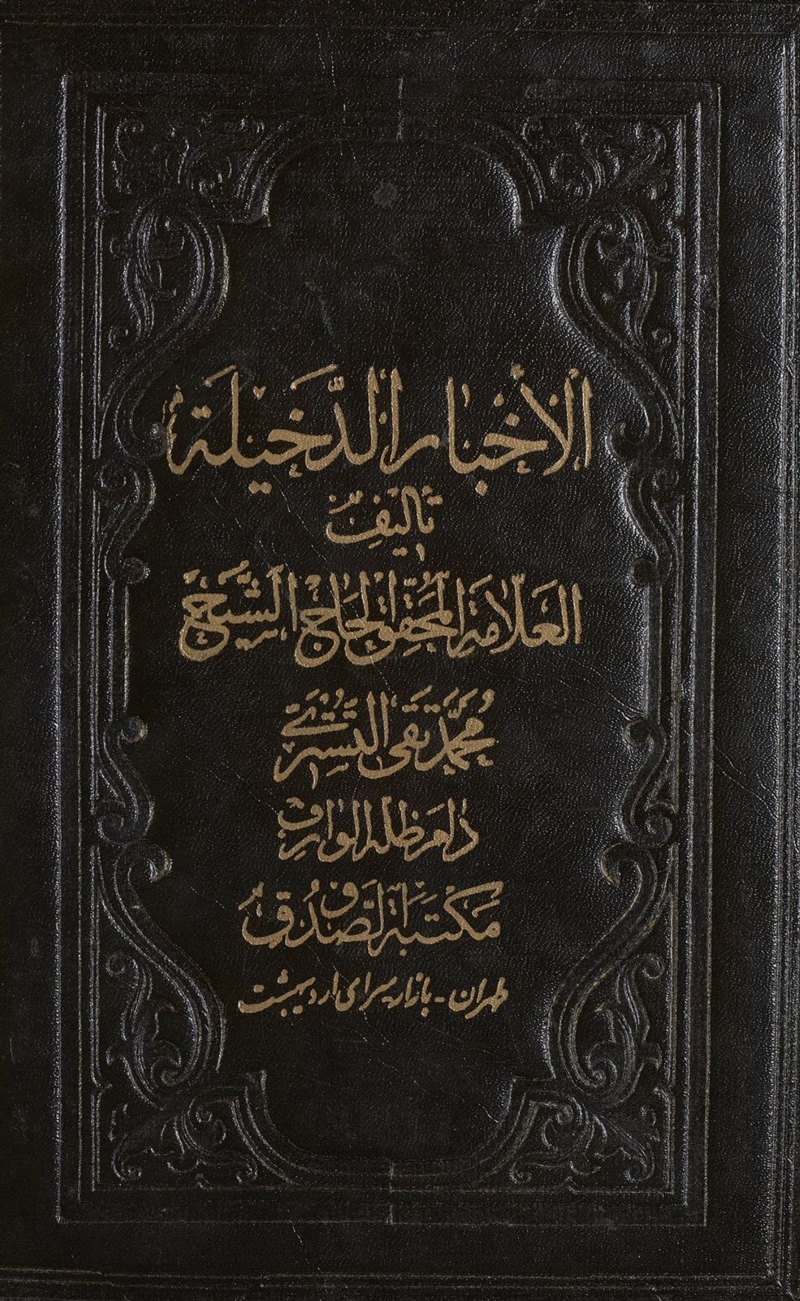 الأخبار الدَّخيلَة
تأليف
العَلّامَة المحَقِّق الحَاج الشَّيخ
مُحَمَّد تَقى التُسْتَرىّ
دامَ ظله الوارف
مَكتبَة الصَّدُوق
طهران - بازار سرای اردیبهشت